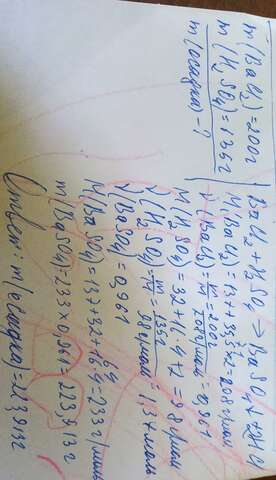 m(BaCl₂)=200г
m(H₂SO₄)=135г
m(осадка)-?
BaCl₂+H₂SO₄→BaSO₄↓+2HCl
M(BaCl₂)=137+35,5×2=208г/моль
ν(BaCl₂)=m/M=200г/208г/моль=0,961
M(H₂SO₄)=2+32+16·4=98г/моль
ν(H₂SO₄)=m/M=135г/98г/моль=1,37моль
ν(BaSO₄)=0,961
M(BaSO₄)=137+32+16·4=233г/моль
64
m(BaSO₄)=233×0,961=223,913г
Ответ: m(осадка)=223,913г